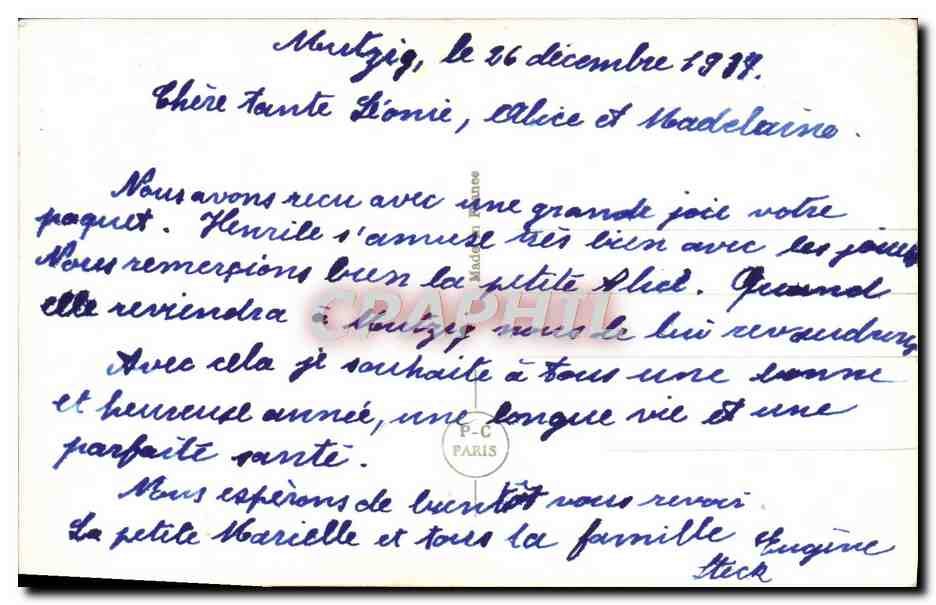 Mutzig, le 26 décembre 1937.
Chère tante Léonie, Alice et Madelaine.
Nous avons recu avec une grande joie votre
paquet. Henrile s'amuse très bien avec les jouets
Nous remerçions bien la petite Alice. Quand
elle reviendra à Mutzig nous le lui revaudrons
Avec cela je souhaite à tous une bonne
et heureuse année, une longue vie et une
parfaite santé.
Nous espérons de bientôt vous revoir.
La petite Marielle et tous la famille Eugène
Steck
Made in France
CRAPHIL
P-C
PARIS